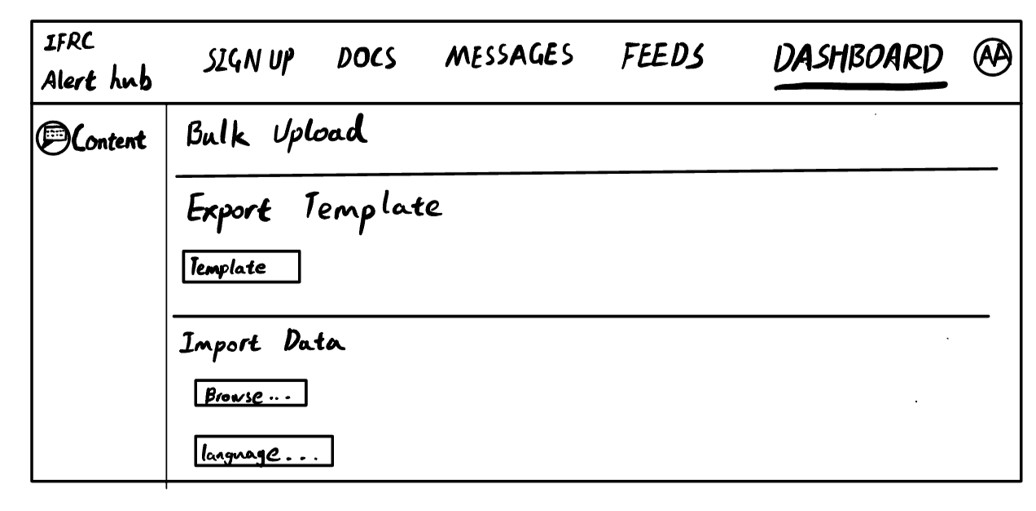 IFRC
Alert hub
SIGN UP DOCS MESSAGES FEEDS DASHBOARD AA
Content
Bulk Upload
Export Template
Template
Import Data
Browse...
language...